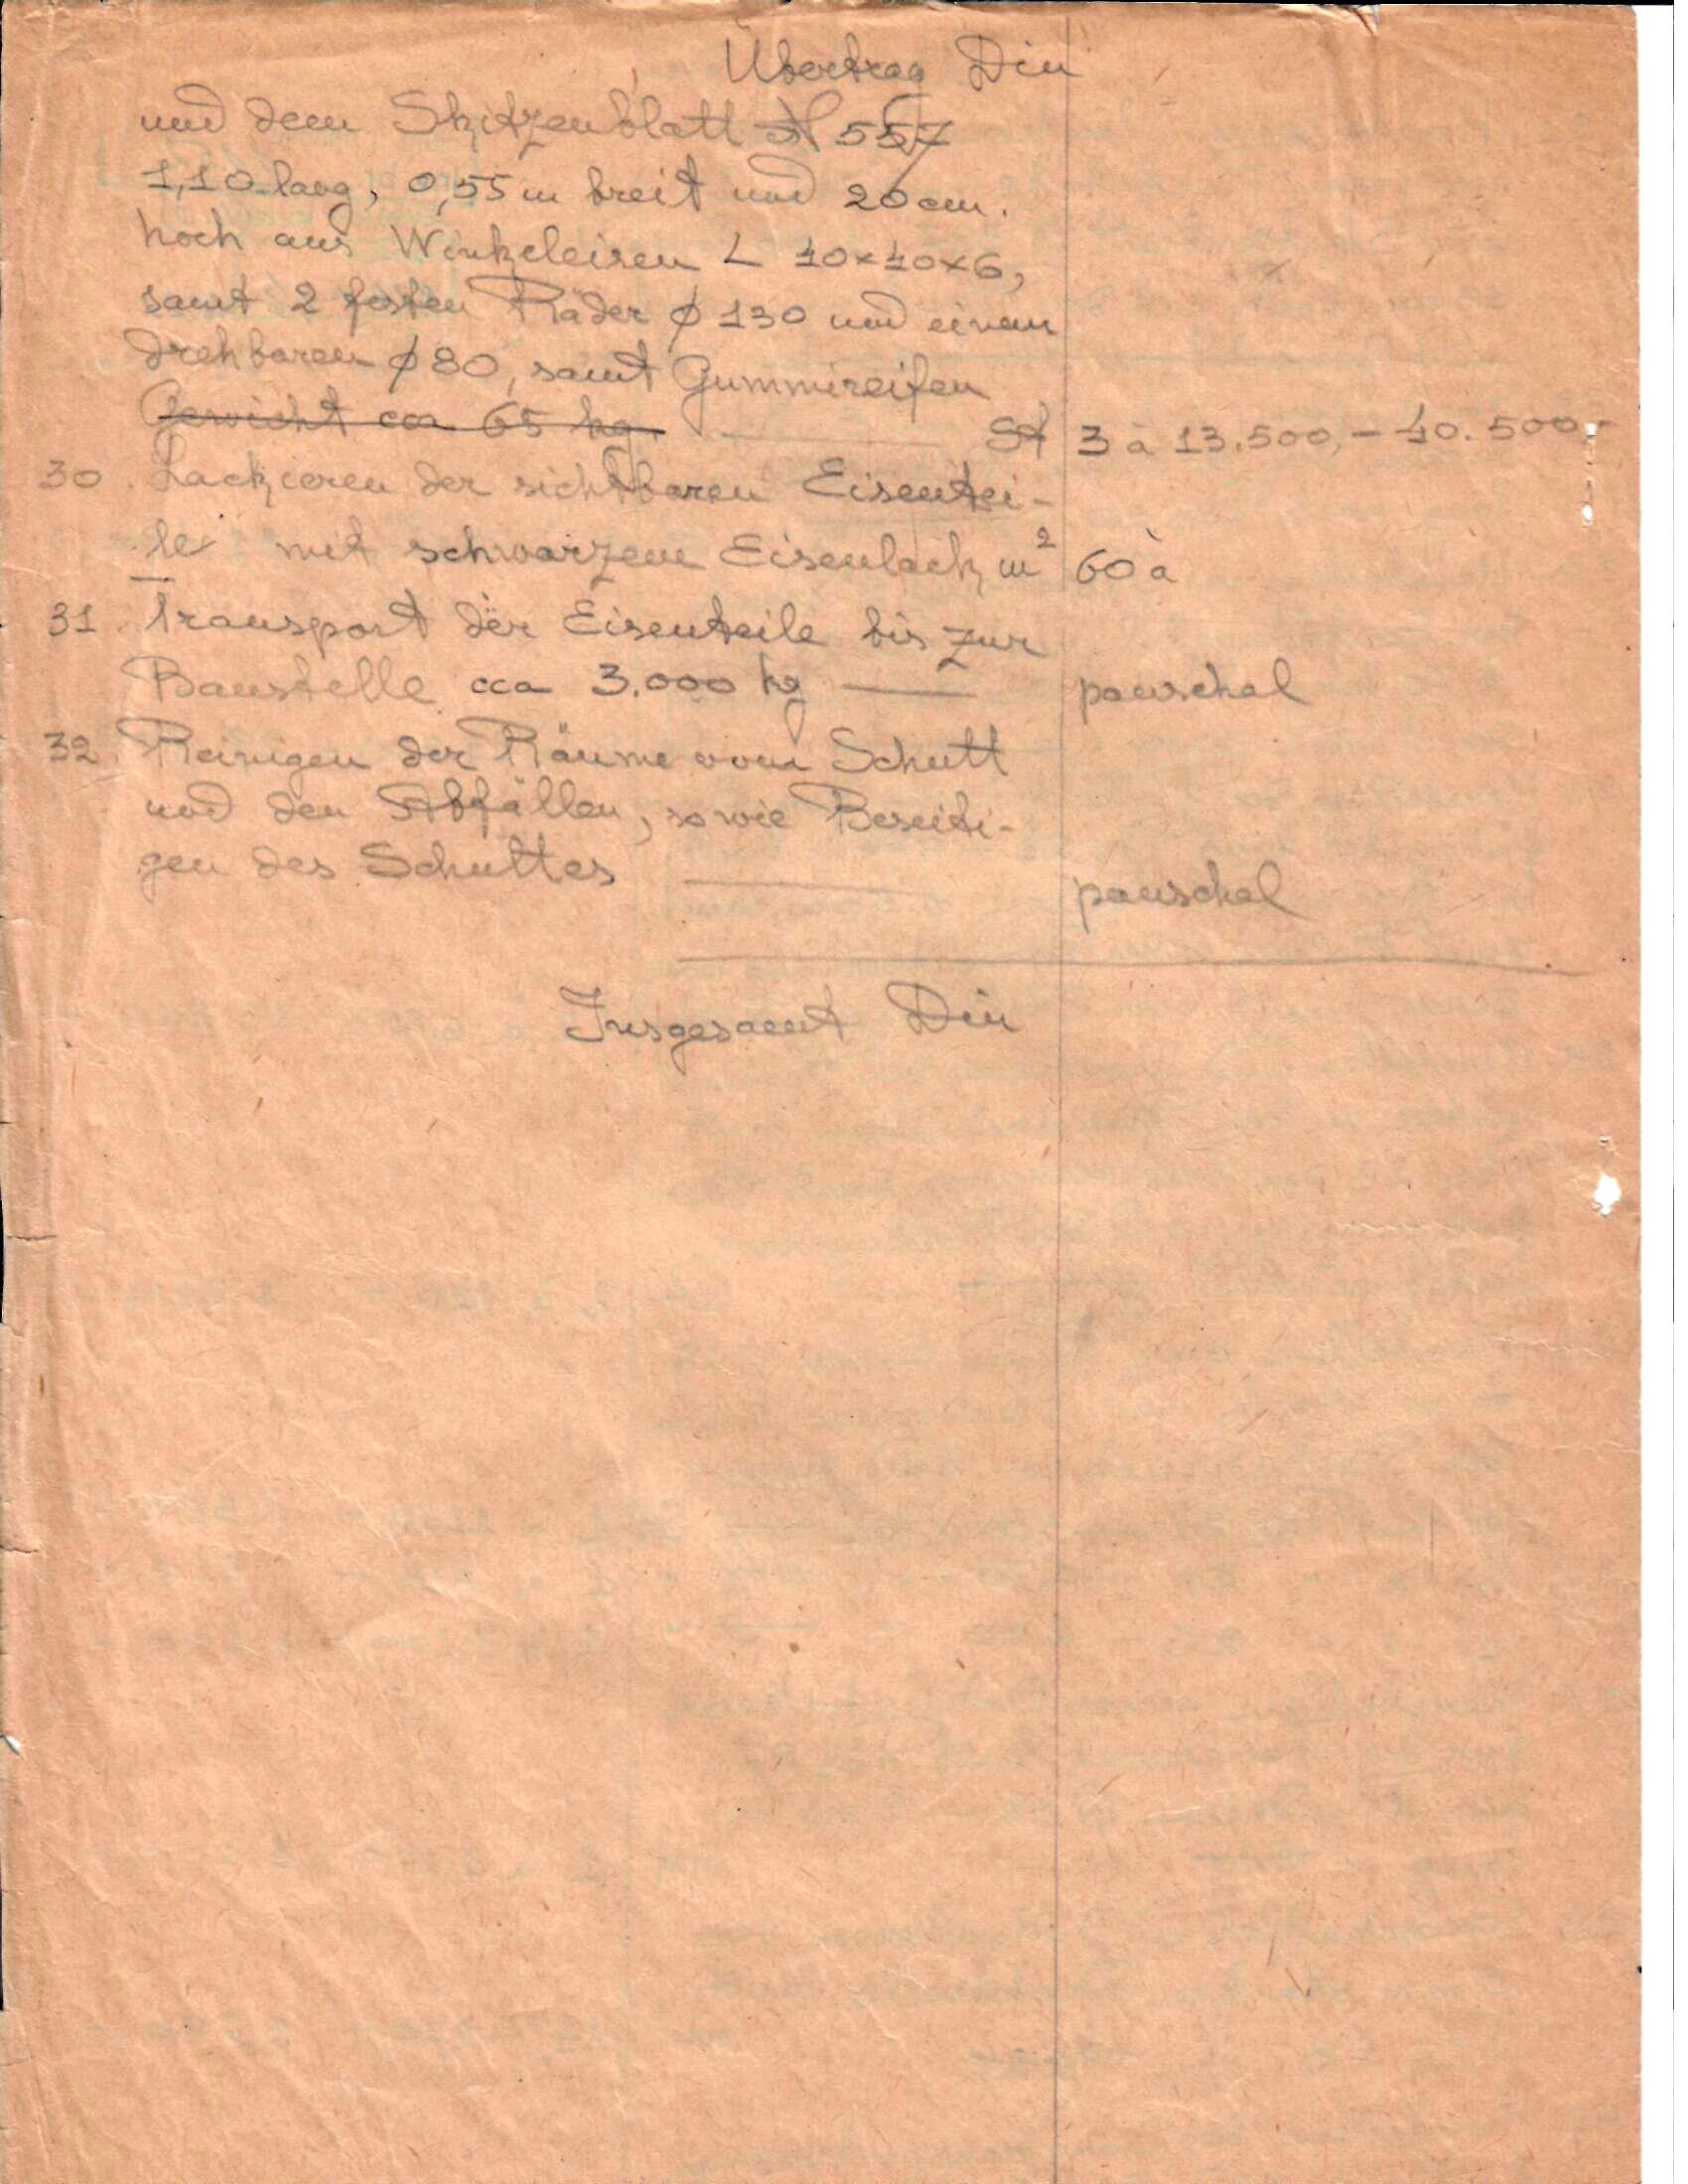 Übertrag Din
und dem Skitzenblatt N 557
1,10 lang, 0,55 m breit und 20 cm.
hoch aus Winkeleisen L 40×40×6,
samt 2 festen Räder ϕ 130 und einem
drehbaren ϕ 80, samt Gummireifen
Gewicht cca 65 kg. St 3 à 13.500,- 40.500,-
30. Lackieren der sichtbaren Eisentei-
le mit schwarzem Eisenlack m² 60 à
31. Transport der Eisenteile bis zur
Baustelle cca 3.000 kg — pauschal
32. Reinigen der Räume vom Schutt
und den Abfällen, sowie Beseiti-
gen des Schuttes — pauschal
Insgesamt Din